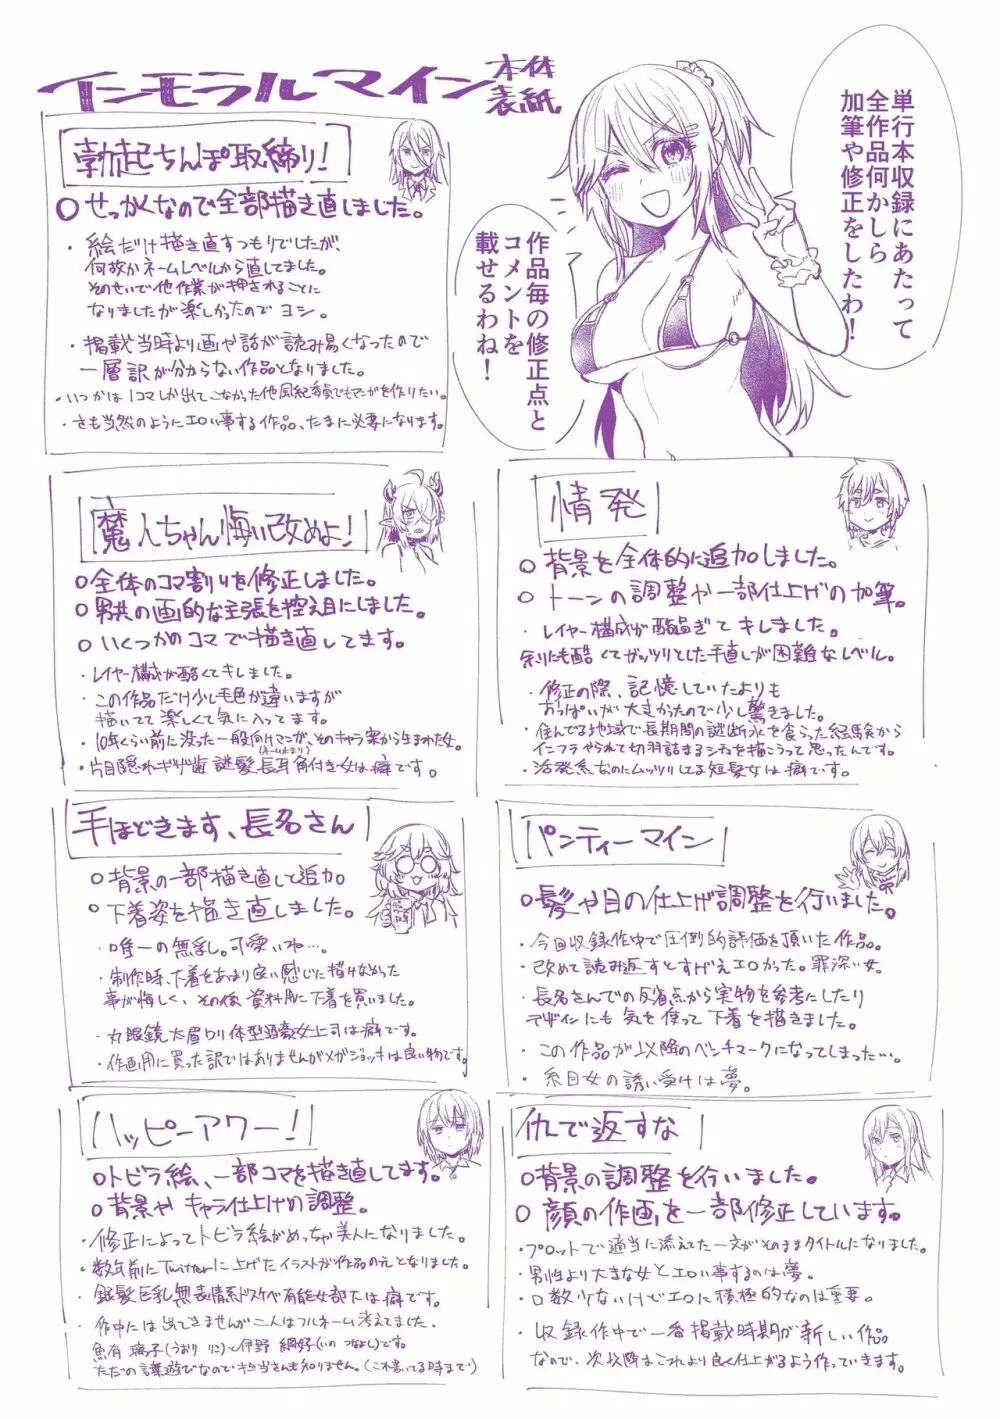 インモラルマイン 本体
表紙
単行本収録にあたって
全作品何かしら
加筆や修正をしたわ！
作品毎の修正点と
コメントを
載せるわね！
勃起ちんぽ取締り！
○せっかくなので全部描き直しました。
・絵だけ描き直すつもりでしたが、
何故かネームレベルから直してました。
そのせいで他作業が押されることに
なりましたが楽しかったのでヨシ。
・掲載当時より画や話が読み易くなったので
一層訳が分からない作品となりました。
・いつかは1コマしか出てこなかった他風紀委員でもマンガを作りたい。
・さも当然のようにエロい事する作品、たまに必要になります。
魔人ちゃん悔い改めよ！
○全体のコマ割りを修正しました。
○男共の画的な主張を控え目にしました。
○いくつかのコマで描き直してます。
・レイヤー構成が酷くてキレました。
・この作品だけ少し毛色が違いますが
描いてて楽しくて気に入ってます。
・10年くらい前に没った一般向けマンガ(ネーム止まり)、そのキャラ案から生まれた女。
・片目隠れギザ歯謎髪長耳角付き女は癖です。
情発
○背景を全体的に追加しました。
○トーンの調整や一部仕上げの加筆。
・レイヤー構成が酷過ぎてキレました。
余りにも酷くてガッツリとした手直しが困難なレベル。
・修正の際、記憶していたよりも
おっぱいが大きかったので少し驚きました。
・住んでる地域で長期間の謎断水を食らった経験から
インフラやられて切羽詰まるシチュを描こうって思ったんです。
・活発系なのにムッツリしてる短髪女は癖です。
手ほどきます、長名さん
○背景の一部描き直しと追加
○下着姿を描き直しました。
・唯一の無乳。可愛いね…。
・制作時、下着をあまり良い感じに描けなかった
事が悔しく、その後資料用に下着を買いました。
・丸眼鏡太眉ロリ体型酒豪女上司は癖です。
・作画用に買った訳ではありませんがメガジョッキは良い物です。
パンティーマイン
○髪や目の仕上げ調整を行いました。
・今回収録作中で圧倒的評価を頂いた作品。
・改めて読み返すとすげえエロかった。罪深い女。
・長名さんでの反省点から実物を参考にしたり
デザインにも気を使って下着を描きました。
・この作品が以降のベンチマークになってしまった…。
・糸目女の誘い受けは夢。
ハッピーアワー！
○トビラ絵、一部コマを描き直してます。
○背景やキャラ仕上げの調整。
・修正によってトビラ絵がめっちゃ美人になりました。
・数年前にTwitterに上げたイラストが作品の元となりました。
・銀髪巨乳無表情系ドスケベ有能女部下は癖です。
・作中には出てきませんが二人はフルネーム考えてました。
魚有 璃子(うおり りこ)と伊野 綱好(いの つなよし)です。
ただの言葉遊びなので担当さんも知りません。(これ書いてる時まで)
仇で返すな
○背景の調整を行いました。
○顔の作画を一部修正しています。
・プロットで適当に添えてた一文がそのままタイトルになりました。
・男性より大きな女とエロい事するのは夢。
・口数少ないけどエロに積極的なのは重要。
・収録作中で一番掲載時期が新しい作品
なので、次以降はこれより良く仕上がるよう作っていきます。